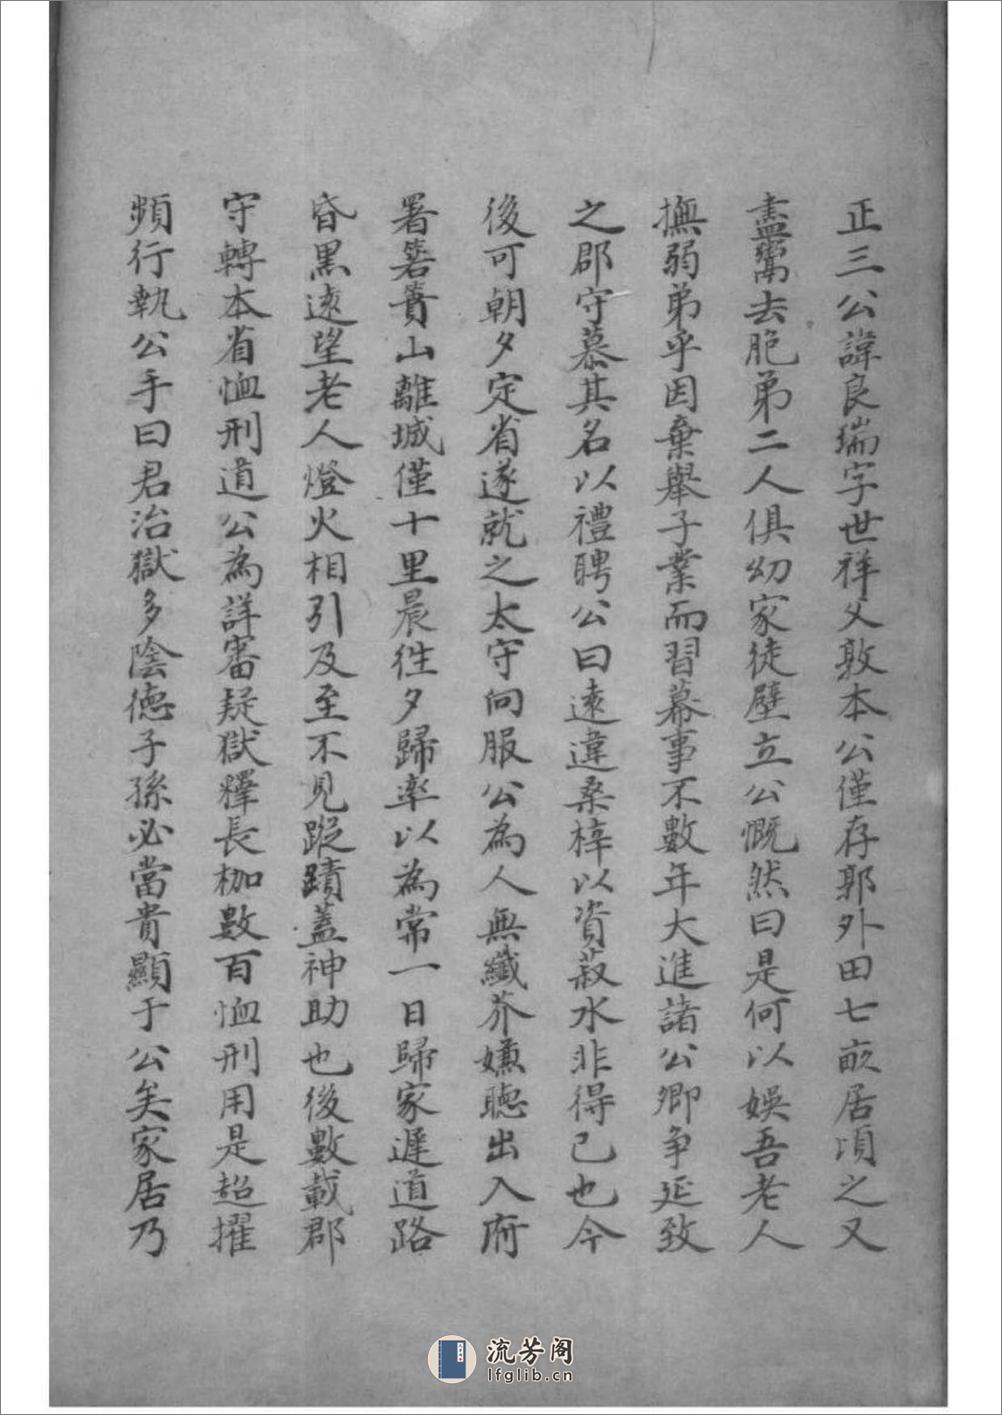 正三公諱良瑞字世祥父敦本公僅存郭外田七畝居頃之又
盡鬻去胞弟二人俱幼家徒壁立公慨然曰是何以娛吾老人
撫弱弟乎因棄舉子業而習幕事不數年大進諸公卿争延致
之郡守慕其名以禮聘公曰遠違桑梓以資菽水非得已也今
後可朝夕定省遂就之太守向服公為人無纖芥嫌聽出入府
署箬蕢山離城僅十里晨徃夕歸率以為常一日歸家遲道路
昏黒遠望老人燈火相引及至不見蹤蹟蓋神助也後數載郡
守轉本省恤刑道公為詳審疑獄釋長枷數百恤刑用是超擢
頻行執公手曰君治獄多陰德子孫必當貴顯于公矣家居乃
流芳阁
lfglib.cn